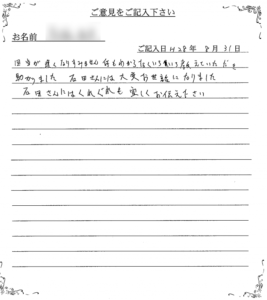 ご意見をご記入下さい
お名前
ご記入日 H28年 8月31日
回答が遅くなりすみません 何もわからなくいろいろ教えていただき
助かりました 石田さんには大変お世話になりました
石田さんにはくれぐれも宜しくお伝え下さい